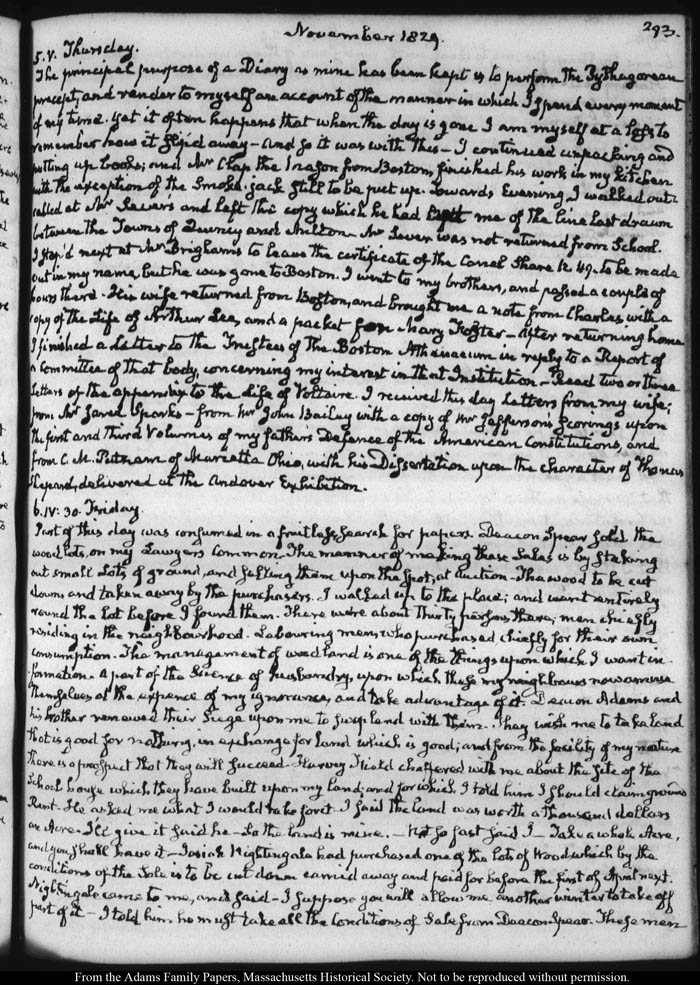 November 1829.
293.
5. V. Thursday.
The principal purpose of a Diary as mine has been kept is to perform the Pythagorean
precept, and render to myself an account of the manner in which I spend every moment
of my time. yet it often happens that when the day is gone I am myself at a loss to
remember how it slip'd away — and so it was with this — I continued unpacking and
putting up books; and Mr Clap the Mason from Boston, finished his work in my kitchen
with the exception of the Smoke-jack still to be put up. Towards Evening I walked out.
called at Mr and left this copy which he had me of the line last drawn
between the Towns of Quincy and Milton. Mr was not returned from School.
I stop'd next at Mr Brigham's to leave the certificate of the Canal Share N. 49. to be made
out in my name, but he was gone to Boston. I went to my brother's, and passed a couple of
hours there. His wife returned from Boston, and brought me a note from Charles with a
copy of the Life of Arthur Lee, and a packet from Mary Foster — After returning home
I finished a Letter to the Trustees of the Boston Athenaeum in reply to a Report of
a Committee of that body, concerning my interest in that Institution — Read two or three
Letters of the appendix to the Life of Voltaire. I received this day Letters from my wife;
from Mr Jared Sparks — from Mr John Bailey with a copy of Mr Jefferson's scorings upon
the first and third Volumes of my father's Defence of the American Constitutions, and
from C. M. Putnam of Marietta Ohio, with his Dissertation upon the character of Thomas
Shepard, delivered at the Andover Exhibition.
6. IV: 30. Friday.
Part of this day was consumed in a fruitless search for papers. Deacon Spear sold the
wood lots, on my Lawyers Common. The manner of making these Sales is by staking
out small Lots of ground, and selling them upon the spot, at auction. The wood to be cut
down and taken away by the purchasers. I walked up to the place; and went entirely
round the lot before I found them. There were about thirty persons there; men chiefly
residing in the neighbourhood. Labouring men, who purchased chiefly for their own
consumption. The management of wood land is one of the things upon which I want in-
formation. A part of the Science of husbandry, upon which these my neighbours now amuse
themselves at the expence of my ignorance, and take advantage of it. Deacon Adams and
his brother renewed their Siege upon me to swap land with them. They wish me to take land
that is good for nothing, in exchange for land which is good; and from the facility of my nature
there is a prospect that they will succeed. Harvey Field chaffered with me about the site of the
School house which they have built upon my land; and for which I told him I should claim ground
Rent. He asked me what I would take for it. I said the land was worth a thousand dollars
an Acre. I'll give it said he — So the land is mine. — Not so fast said I — Take a whole Acre,
and you shall have it — Josiah Nightingale had purchased one of the lots of Wood which by the
conditions of the Sale is to be cut down carried away and paid for before the first of April next.
Nightingale came to me, and said — I suppose you will allow me another winter to take off
part of it — I told him he must take all the Conditions of Sale from Deacon Spear. These men
From the Adams Family Papers, Massachusetts Historical Society. Not to be reproduced without permission.